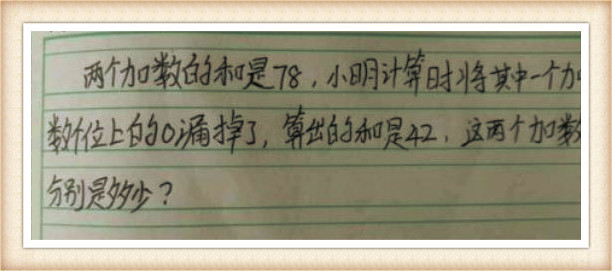 两个加数的和是78，小明计算时将其中一个加
数个位上的0漏掉了，算出的和是42，这两个加数
分别是多少？